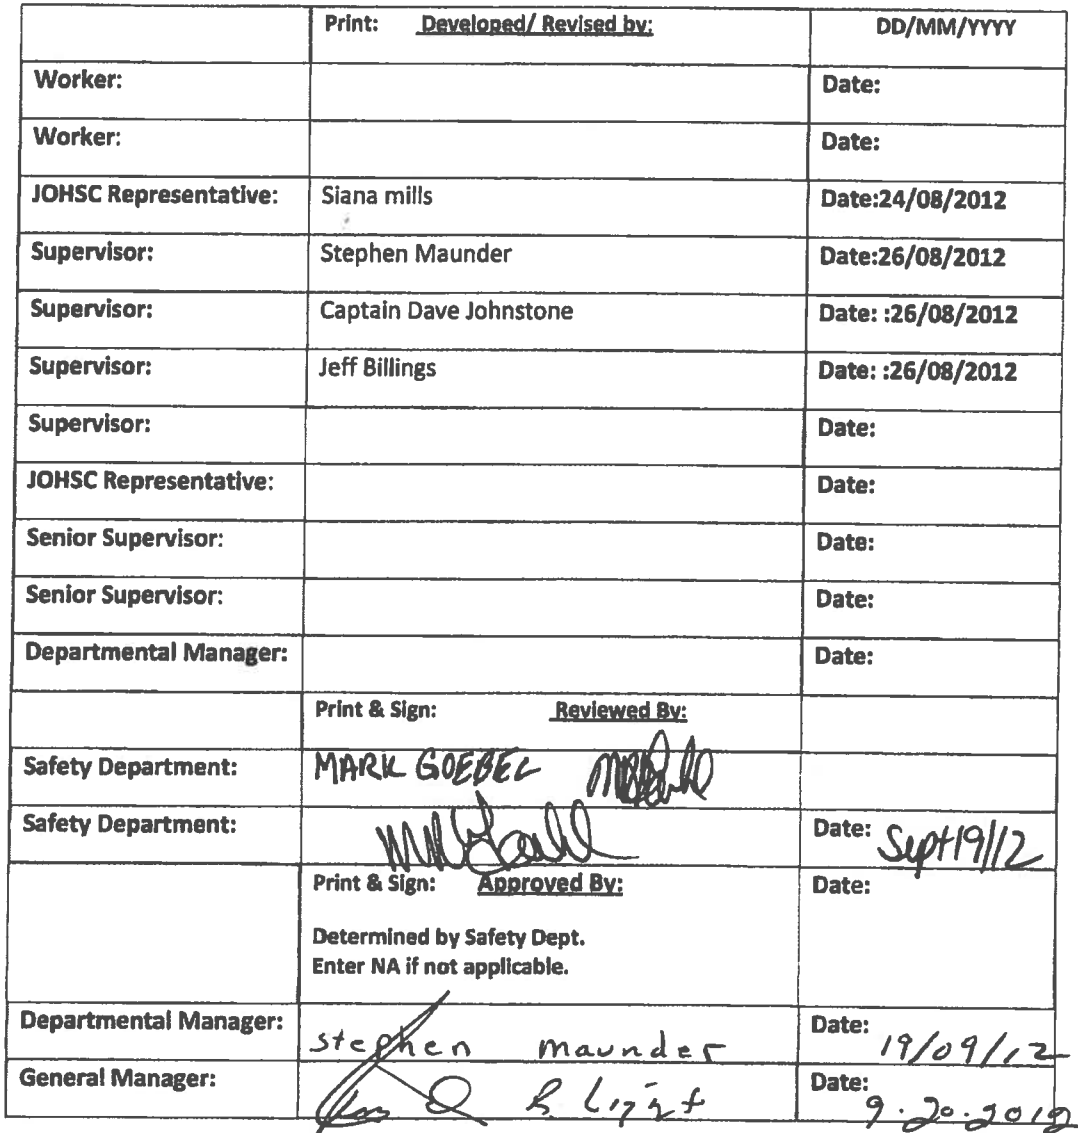 Print: Developed/ Revised by: DD/MM/YYYY
Worker: Date:
Worker: Date:
JOHSC Representative: Siana mills Date:24/08/2012
Supervisor: Stephen Maunder Date:26/08/2012
Supervisor: Captain Dave Johnstone Date: :26/08/2012
Supervisor: Jeff Billings Date: :26/08/2012
Supervisor: Date:
JOHSC Representative: Date:
Senior Supervisor: Date:
Senior Supervisor: Date:
Departmental Manager: Date:
Print & Sign: Reviewed By:
Safety Department: MARK GOEBEL
Safety Department: Date: Sept 19/12
Print & Sign: Approved By: Date:
Determined by Safety Dept.
Enter NA if not applicable.
Departmental Manager: stephen maunder Date: 19/09/12
General Manager: Date: 9.20.2012